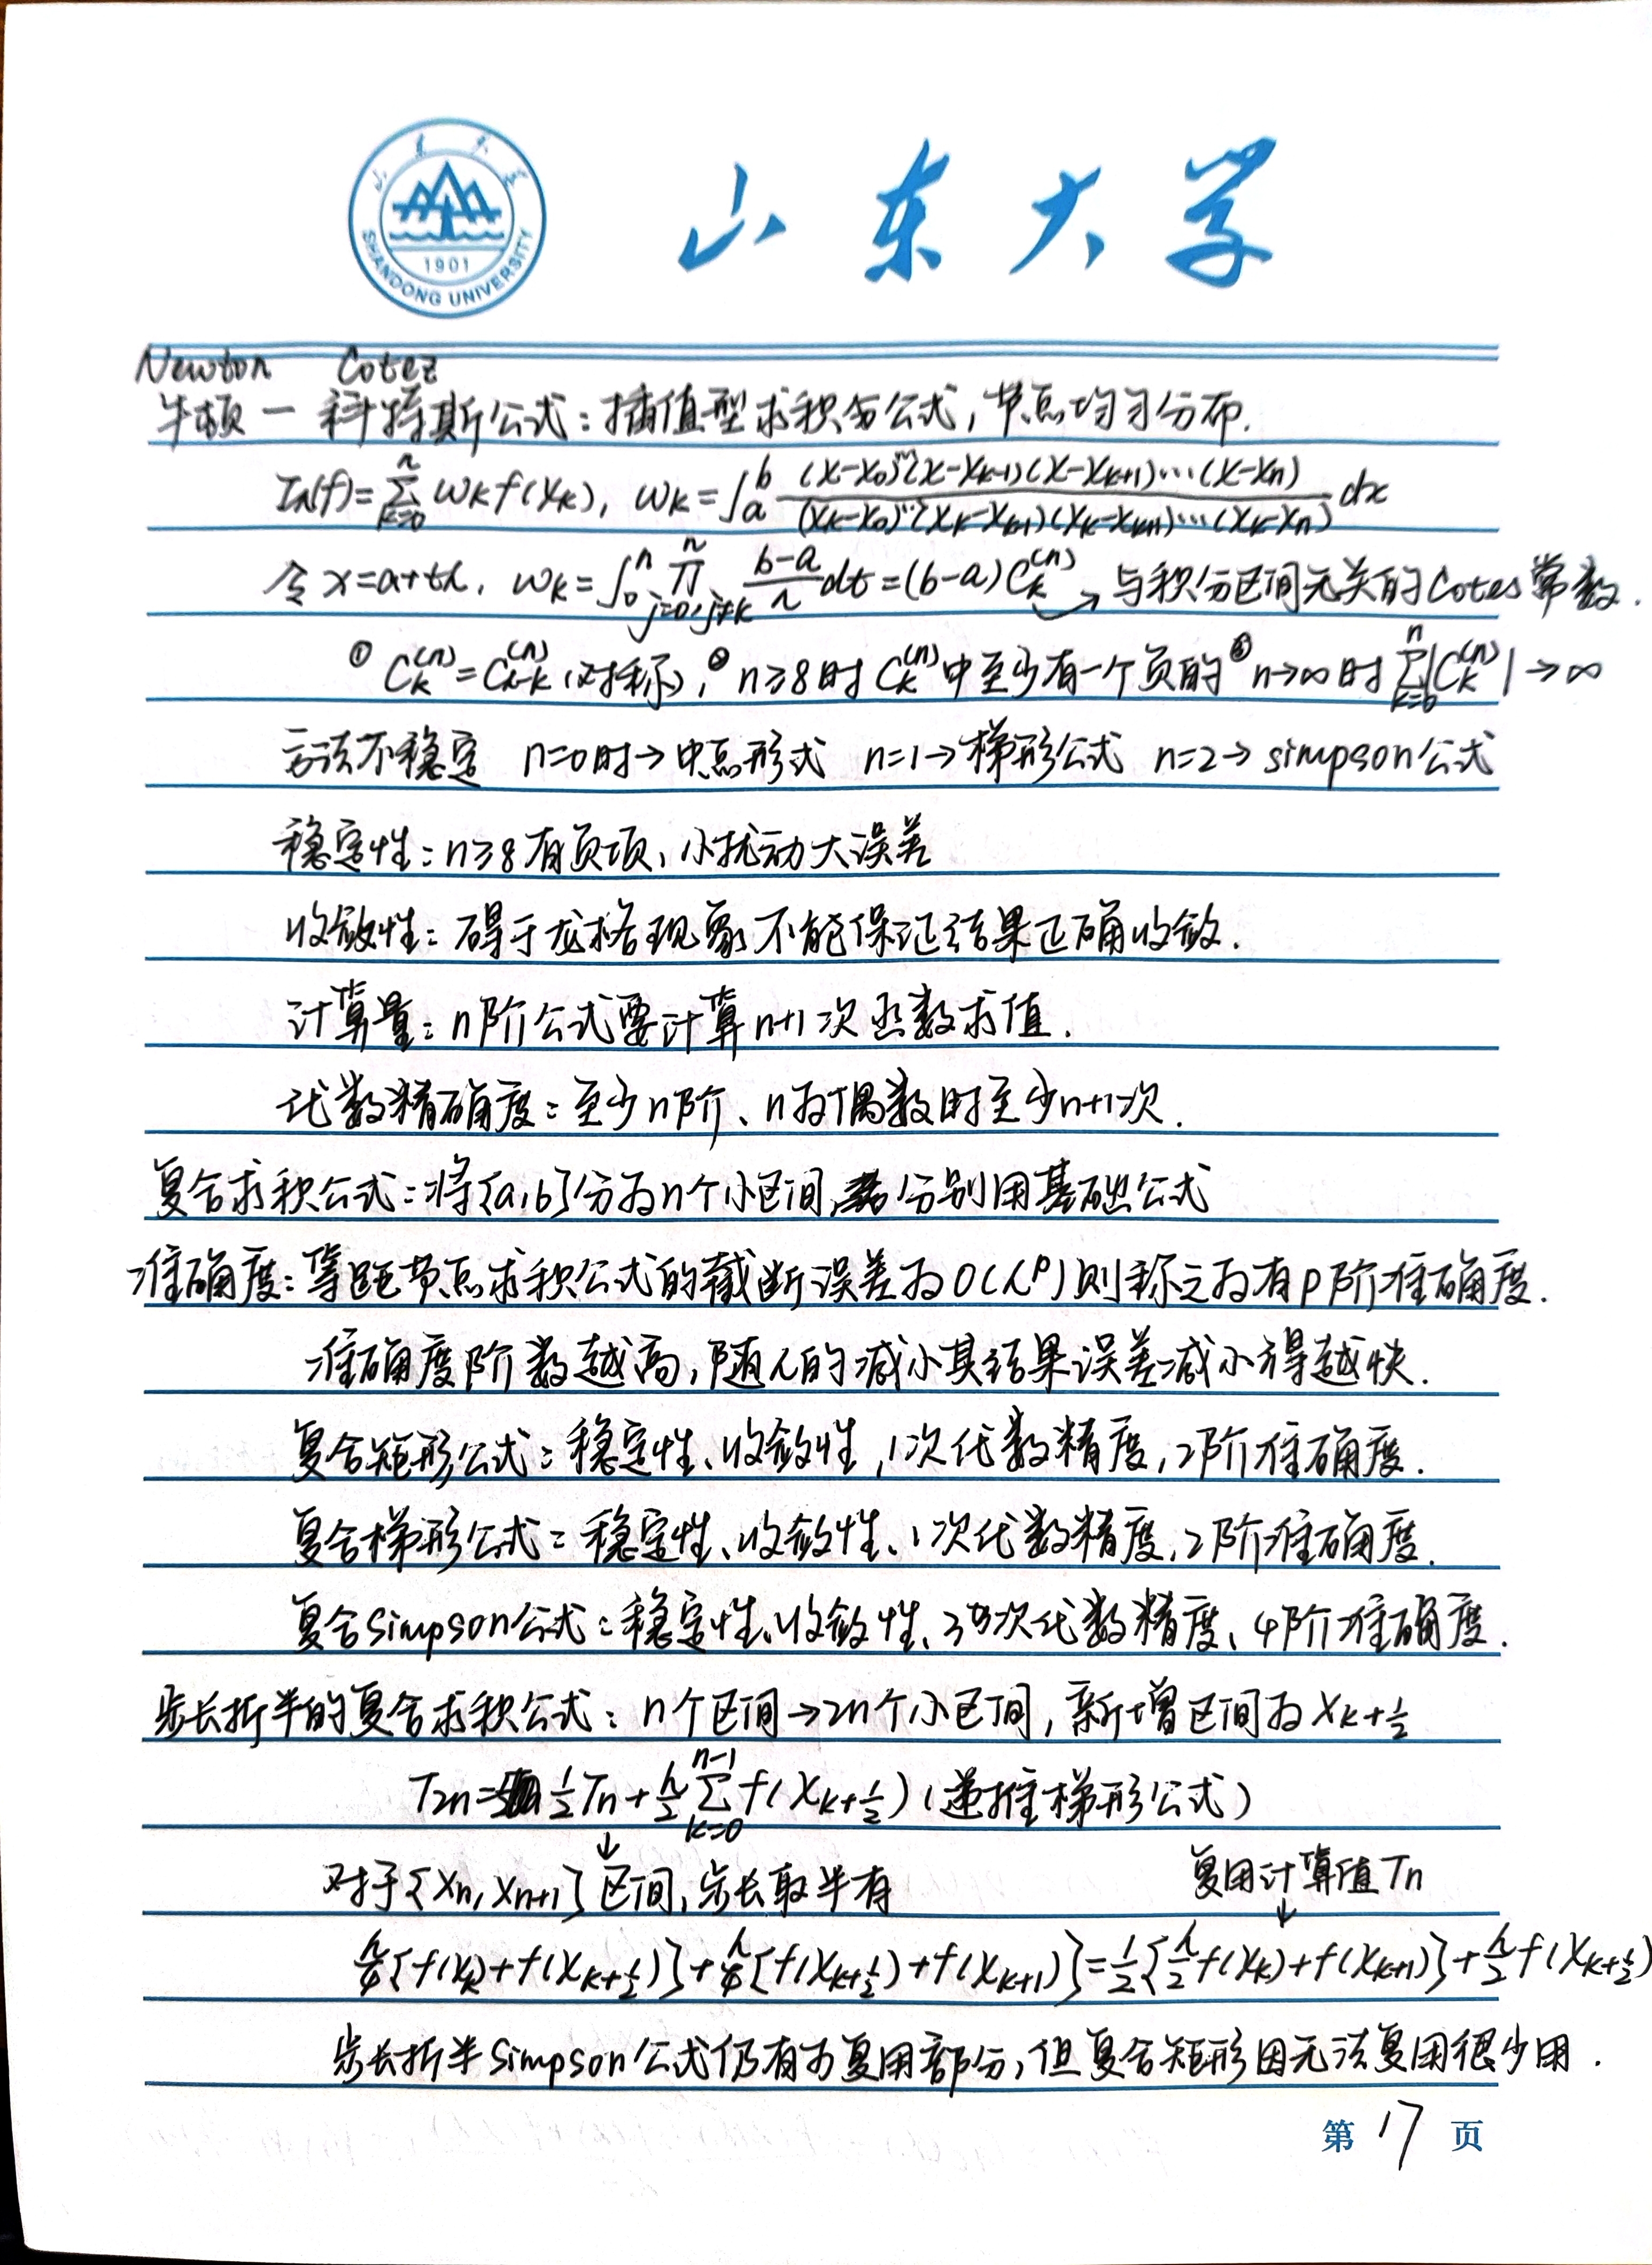 山东大学
SHANDONG UNIVERSITY
1901
Newton Cotez
牛顿-科特斯公式:插值型求积分公式,节点均匀分布.
In(f)=∑_{k=0}^{n} ωk f(xk), ωk=∫_a^b (x-x0)…(x-xk-1)(x-xk+1)…(x-xn) / (xk-x0)…(xk-xk-1)(xk-xk+1)…(xk-xn) dx
令x=a+th, ωk=∫_0^n ∏_{j=0,j≠k}^{n} (b-a)/n dt=(b-a)C_k^{(n)} → 与积分区间无关的Cotes常数.
① C_k^{(n)}=C_{n-k}^{(n)}(对称), ② n≥8时C_k^{(n)}中至少有一个负的 ③ n→∞时 ∑_{k=0}^{n}|C_k^{(n)}|→∞
方法不稳定 n=0时→中点形式 n=1→梯形公式 n=2→simpson公式
稳定性:n≥8有负项,小扰动大误差
收敛性:碍于龙格现象不能保证结果正确收敛.
计算量:n阶公式要计算n+1次函数求值.
代数精确度:至少n阶、n为偶数时至少n+1次.
复合求积公式:将[a,b]分为n个小区间,分别用基础公式
准确度:等距节点求积公式的截断误差为O(h^p)则称之为有p阶准确度.
准确度阶数越高,随h的减小其结果误差减小得越快.
复合矩形公式:稳定性、收敛性,1次代数精度,2阶准确度.
复合梯形公式:稳定性、收敛性、1次代数精度,2阶准确度.
复合simpson公式:稳定性、收敛性、3次代数精度、4阶准确度.
步长折半的复合求积公式:n个区间→2n个小区间,新增区间为x_{k+1/2}
T2n=1/2 Tn+h/2 ∑_{k=0}^{n-1} f(x_{k+1/2})(递推梯形公式)
↓
对于[xn,xn+1]区间,步长取半有 复用计算值Tn
↓
h/4[f(xk)+f(x_{k+1/2})]+h/4[f(x_{k+1/2})+f(x_{k+1})]=1/2[h/2 f(xk)+f(xk+1)]+h/2 f(x_{k+1/2})
步长折半simpson公式仍有可复用部分,但复合矩形因无法复用很少用.
第17页